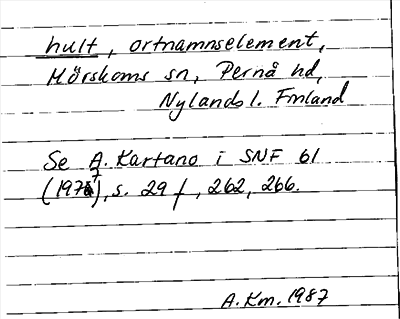 hult, ortnamnselement,
Mörskoms sn, Pernå hd,
Nylands l. Finland
Se A. Kartano i SNF 61
(197), s. 29 f, 262, 266.
A. Km. 1987